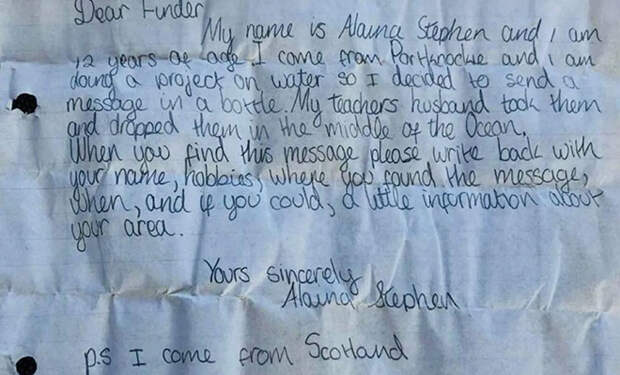 Dear Finder
My name is Alaina Stephen and I am
12 years of age I come from Portknockie and I am
doing a project on water so I decided to send a
message in a bottle. My teachers husband took them
and dropped them in the middle of the Ocean.
When you find this message please write back with
your name, hobbies, where you found the message,
when, and if you could, a little information about
your area.
Yours sincerely
Alaina Stephen
p.s I come from Scotland